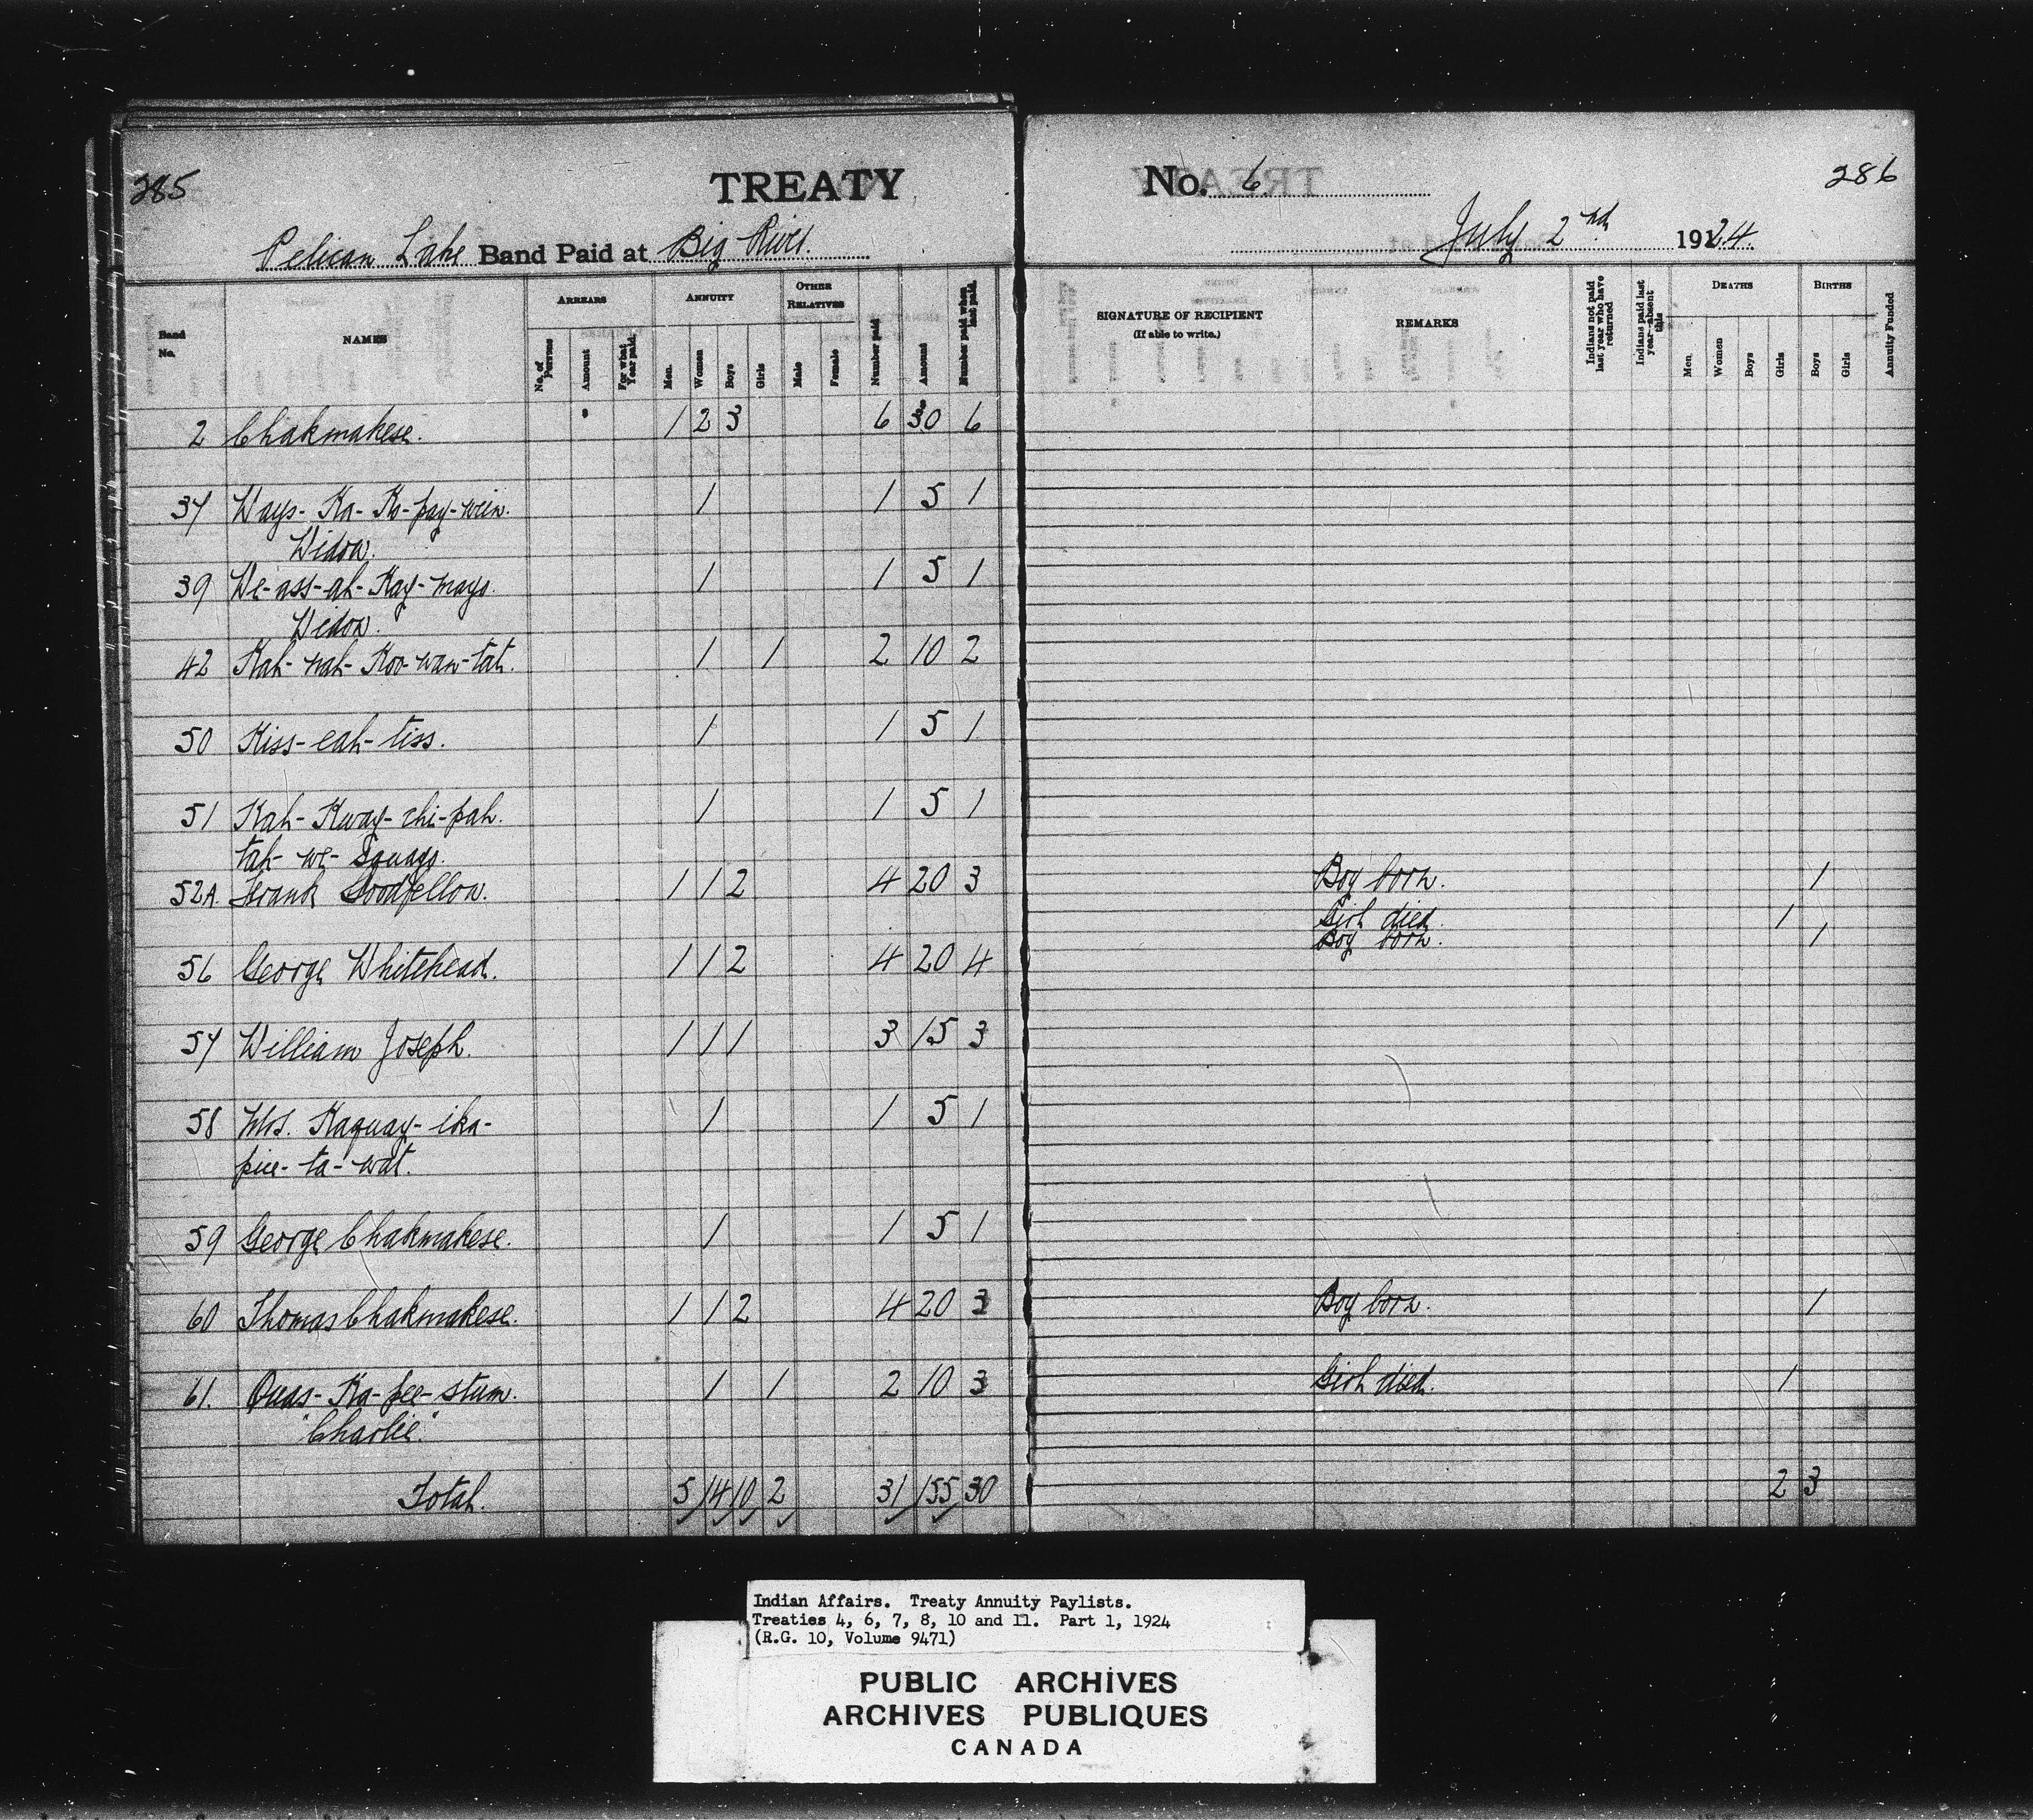 285 TREATY No. 6 286
Pelican Lake Band Paid at Big River July 2nd 1924.
Band No. NAMES ARREARS No. of Persons Amount For what Year paid. ANNUITY Men. Women Boys Girls OTHER RELATIVES Male Female Number paid Amount Number paid when last paid. SIGNATURE OF RECIPIENT (If able to write.) REMARKS Indians not paid last year who have returned Indians paid last year—absent this DEATHS Men. Women Boys Girls BIRTHS Boys Girls Annuity Funded
2 Chakmakese. 1 2 3 6 30 6
37 Ways-Ka-Ko-pay-win. 1 1 5 1
Widow.
39 We-ass-ah-Kay-mayo. 1 1 5 1
Widow.
42 Kah-nah-Koo-wan-tah. 1 1 2 10 2
50 Kiss-eah-tiss. 1 1 5 1
51 Kah-Kway-chi-pah. 1 1 5 1
tah-we-
52A. Frank Goodfellow. 1 1 2 4 20 3 Boy born. 1
Girl died. 1
Boy born. 1
56 George Whitehead. 1 1 2 4 20 4
57 William Joseph. 1 1 1 3 15 3
58 Mrs. Kaquay-ika- 1 1 5 1
pice-ta-wat.
59 George Chakmakese. 1 1 5 1
60 Thomas Chakmakese. 1 1 2 4 20 3 Boy born. 1
61. Quas-Ka-pee-stum. 1 1 2 10 3 Girl died. 1
"Charlie."
Total. 5 14 10 2 31 155 30 2 3
Indian Affairs. Treaty Annuity Paylists.
Treaties 4, 6, 7, 8, 10 and 11. Part 1, 1924
(R.G. 10, Volume 9471)
PUBLIC ARCHIVES
ARCHIVES PUBLIQUES
CANADA